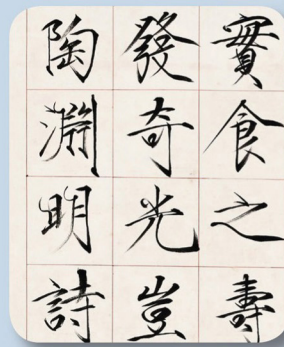 實食之壽
發奇光豈
陶淵明詩